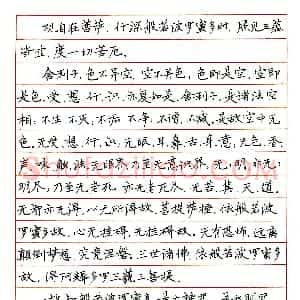 观自在菩萨，行深般若波罗蜜多时，照见五蕴
皆空，度一切苦厄。
舍利子，色不异空，空不异色，色即是空，空即
是色，受、想、行、识，亦复如是。舍利子，是诸法空
相，不生不灭，不垢不净，不增不减，是故空中无
色，无受、想、行、识，无眼、耳、鼻、舌、身、意，无色、声、香、
味、触、法，无眼界，乃至无意识界，无无明，亦无无
明尽，乃至无老死，亦无老死尽，无苦、集、灭、道，
无智亦无得，以无所得故，菩提萨埵，依般若波
罗蜜多故，心无挂碍，无挂碍故，无有恐怖，远离
颠倒梦想，究竟涅槃，三世诸佛，依般若波罗蜜多
故，得阿耨多罗三藐三菩提。